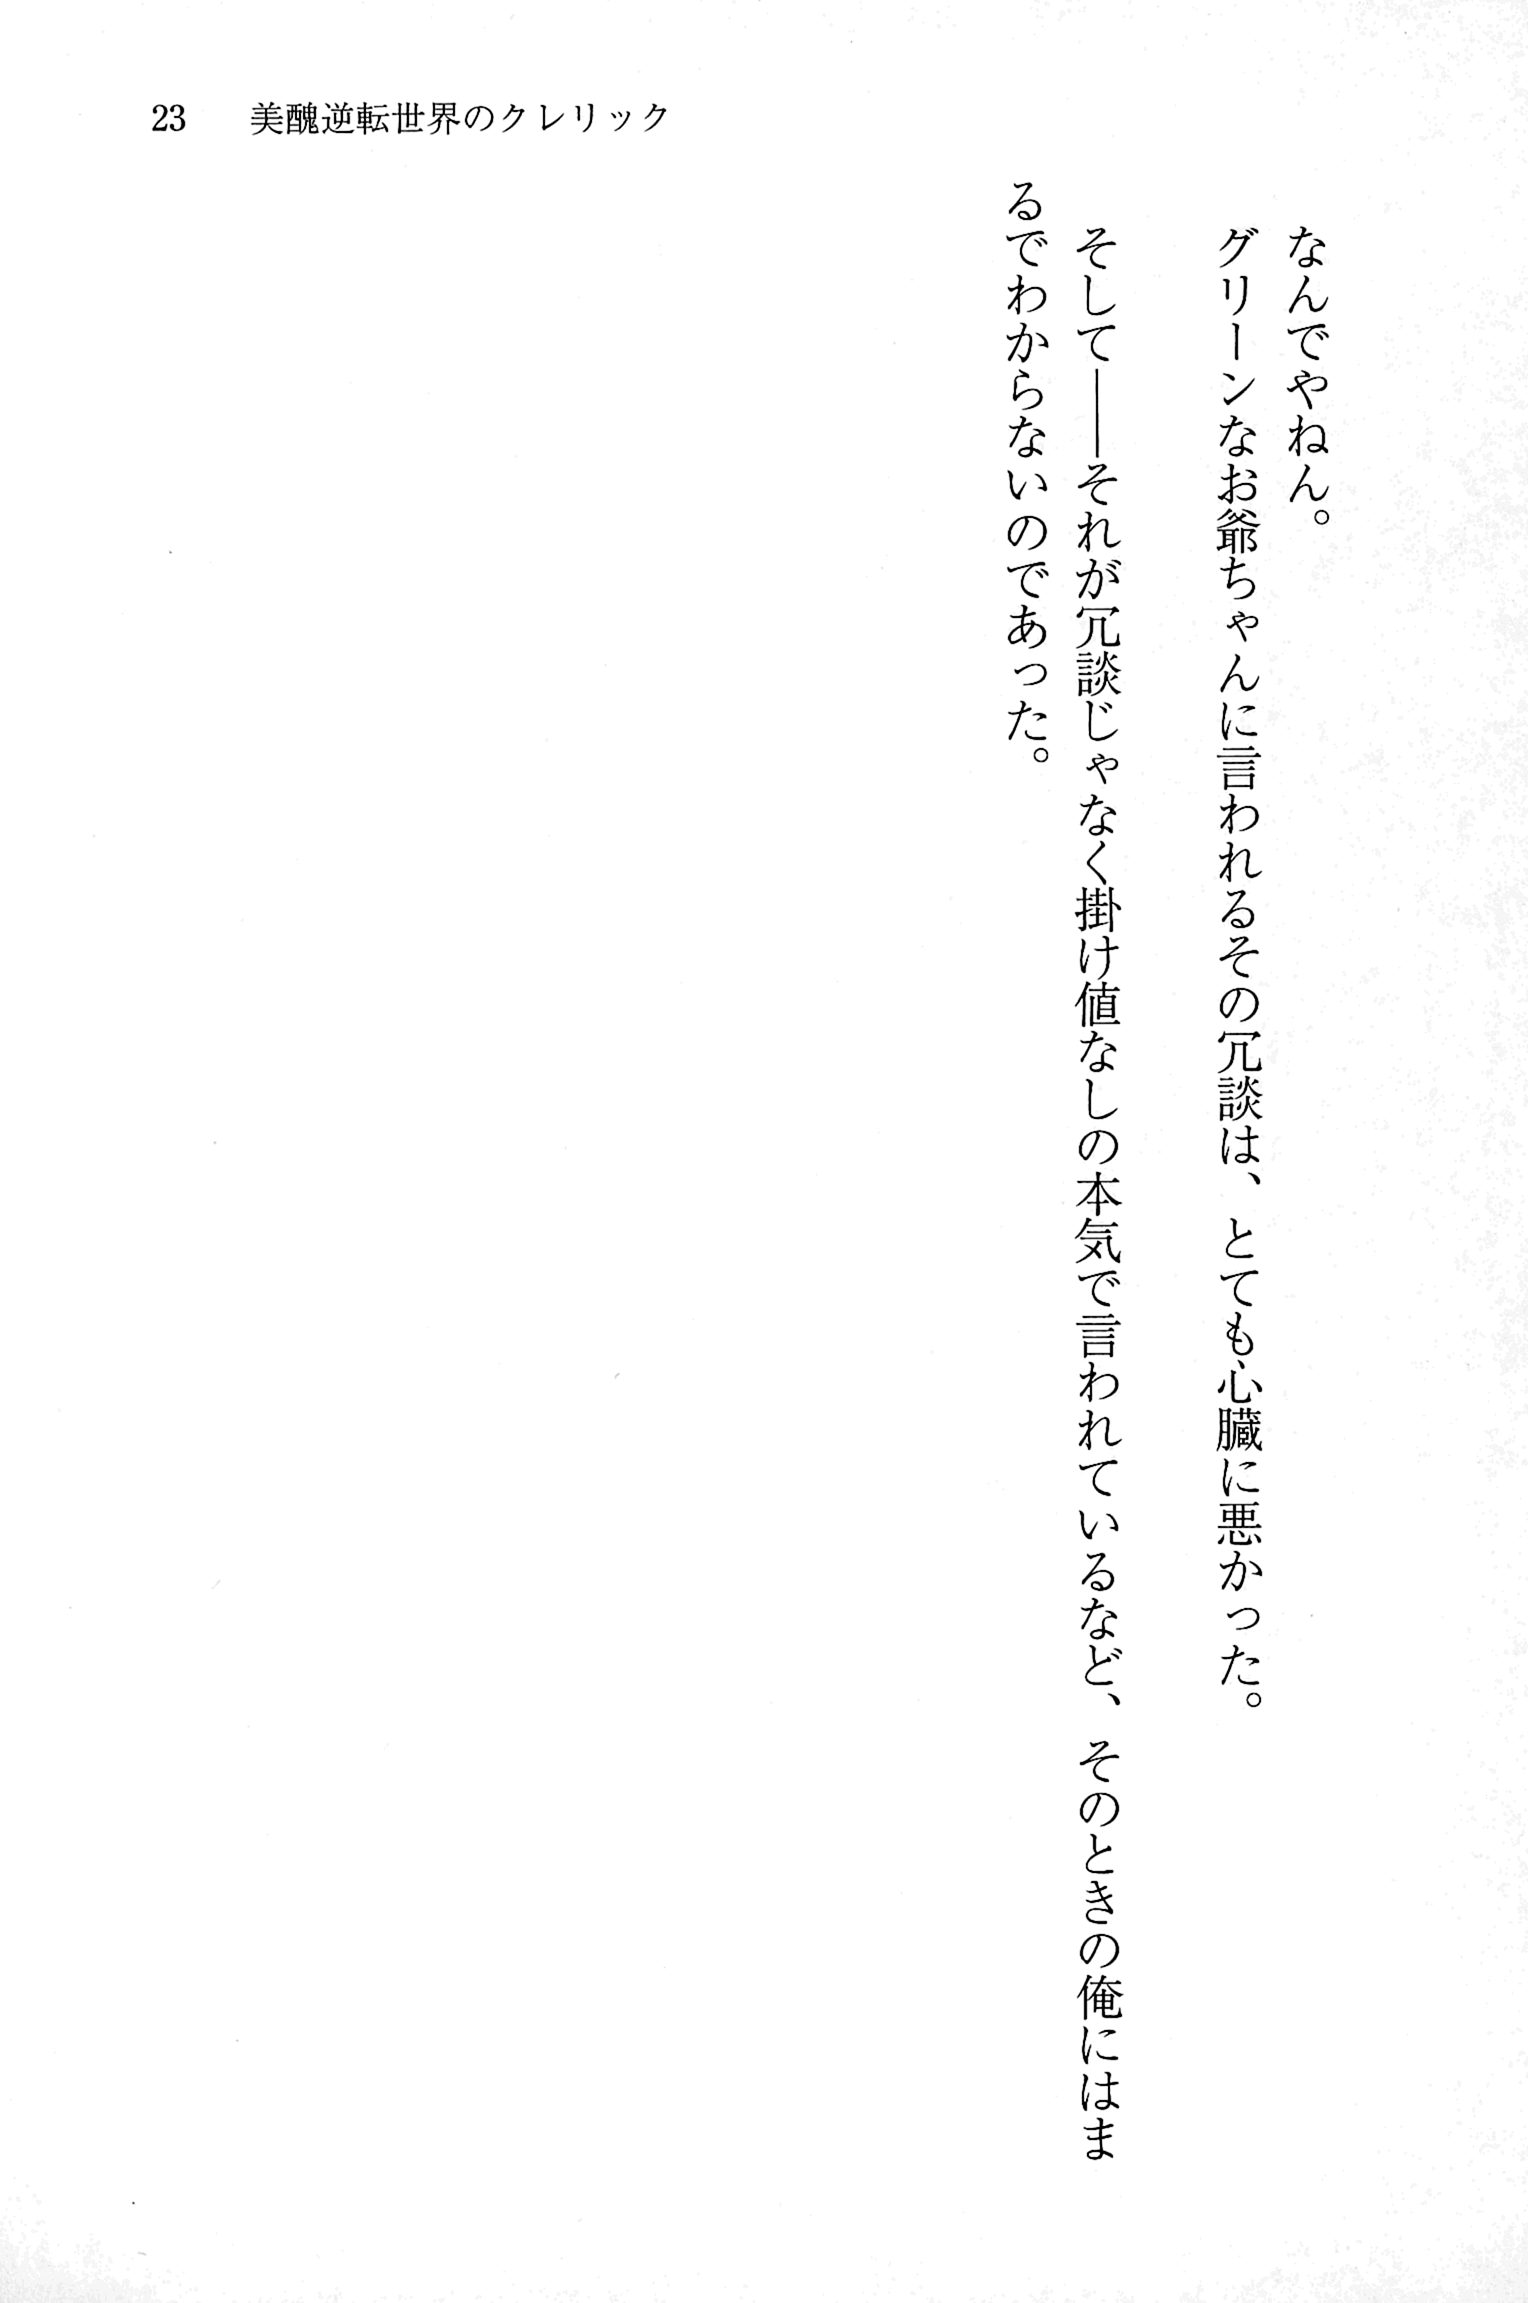 23 美醜逆転世界のクレリック
なんでやねん。
グリーンなお爺ちゃんに言われるその冗談は、とても心臓に悪かった。
そして――それが冗談じゃなく掛け値なしの本気で言われているなど、そのときの俺にはま
るでわからないのであった。